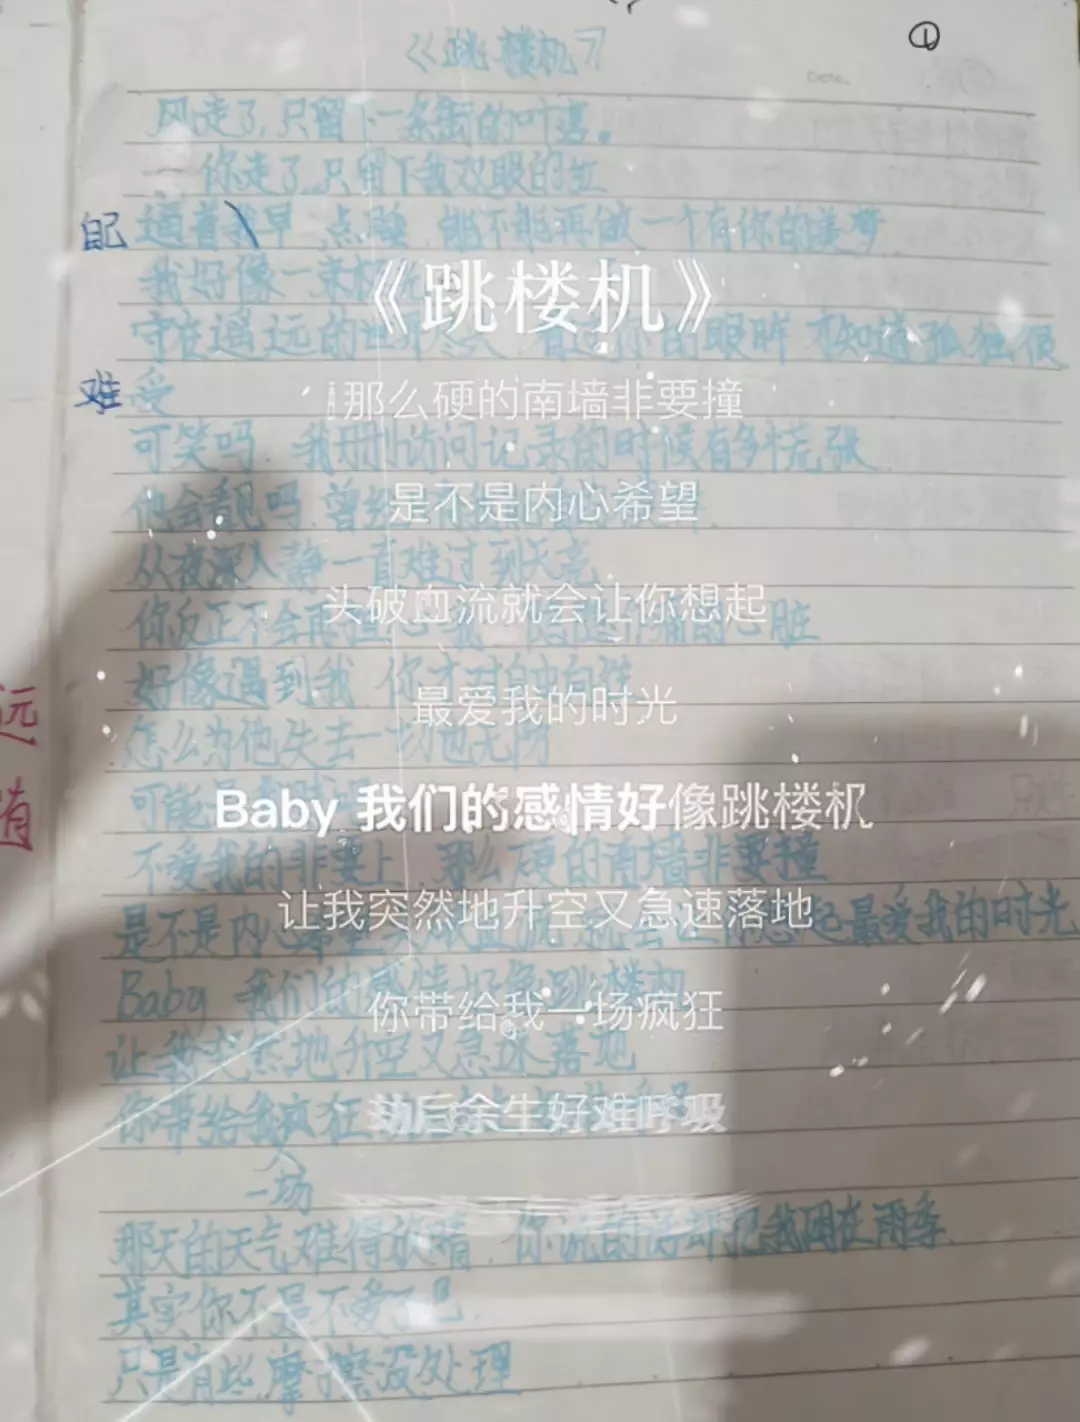 ①
《跳楼机》
Date.
风走了,只留下一条街的叶落。
你走了,只留下我双眼的红
自己 逼着我早点睡,能不能再做一个有你的美梦
我好像一束
《跳楼机》
守在遥远的世 的眼眸 才知道孤独很
难受
那么硬的南墙非要撞
可笑吗 我删访问记录的时候有多慌张
他会 吗 曾
是不是内心希望
从夜深人静一直难过到天亮
头破血流就会让你想起
你反正不会再 的心脏
好像遇到我 你才对自由
最爱我的时光
怎么为他失去一 也无所
远
可能
Baby 我们的感情好像跳楼机
有
不爱我的非要上 那么硬的南墙非要撞
让我突然地升空又急速落地
是不是内心希 起最爱我的时光
Baby 我们的感情好像跳楼机
你带给我一场疯狂
让我突然地升空又急速落地
你带给我疯狂
劫后余生好难呼吸
一场
那天的天气难得放晴,你说的话却把我困在雨季
其实你不是不爱了吧.
只是有些摩擦没处理